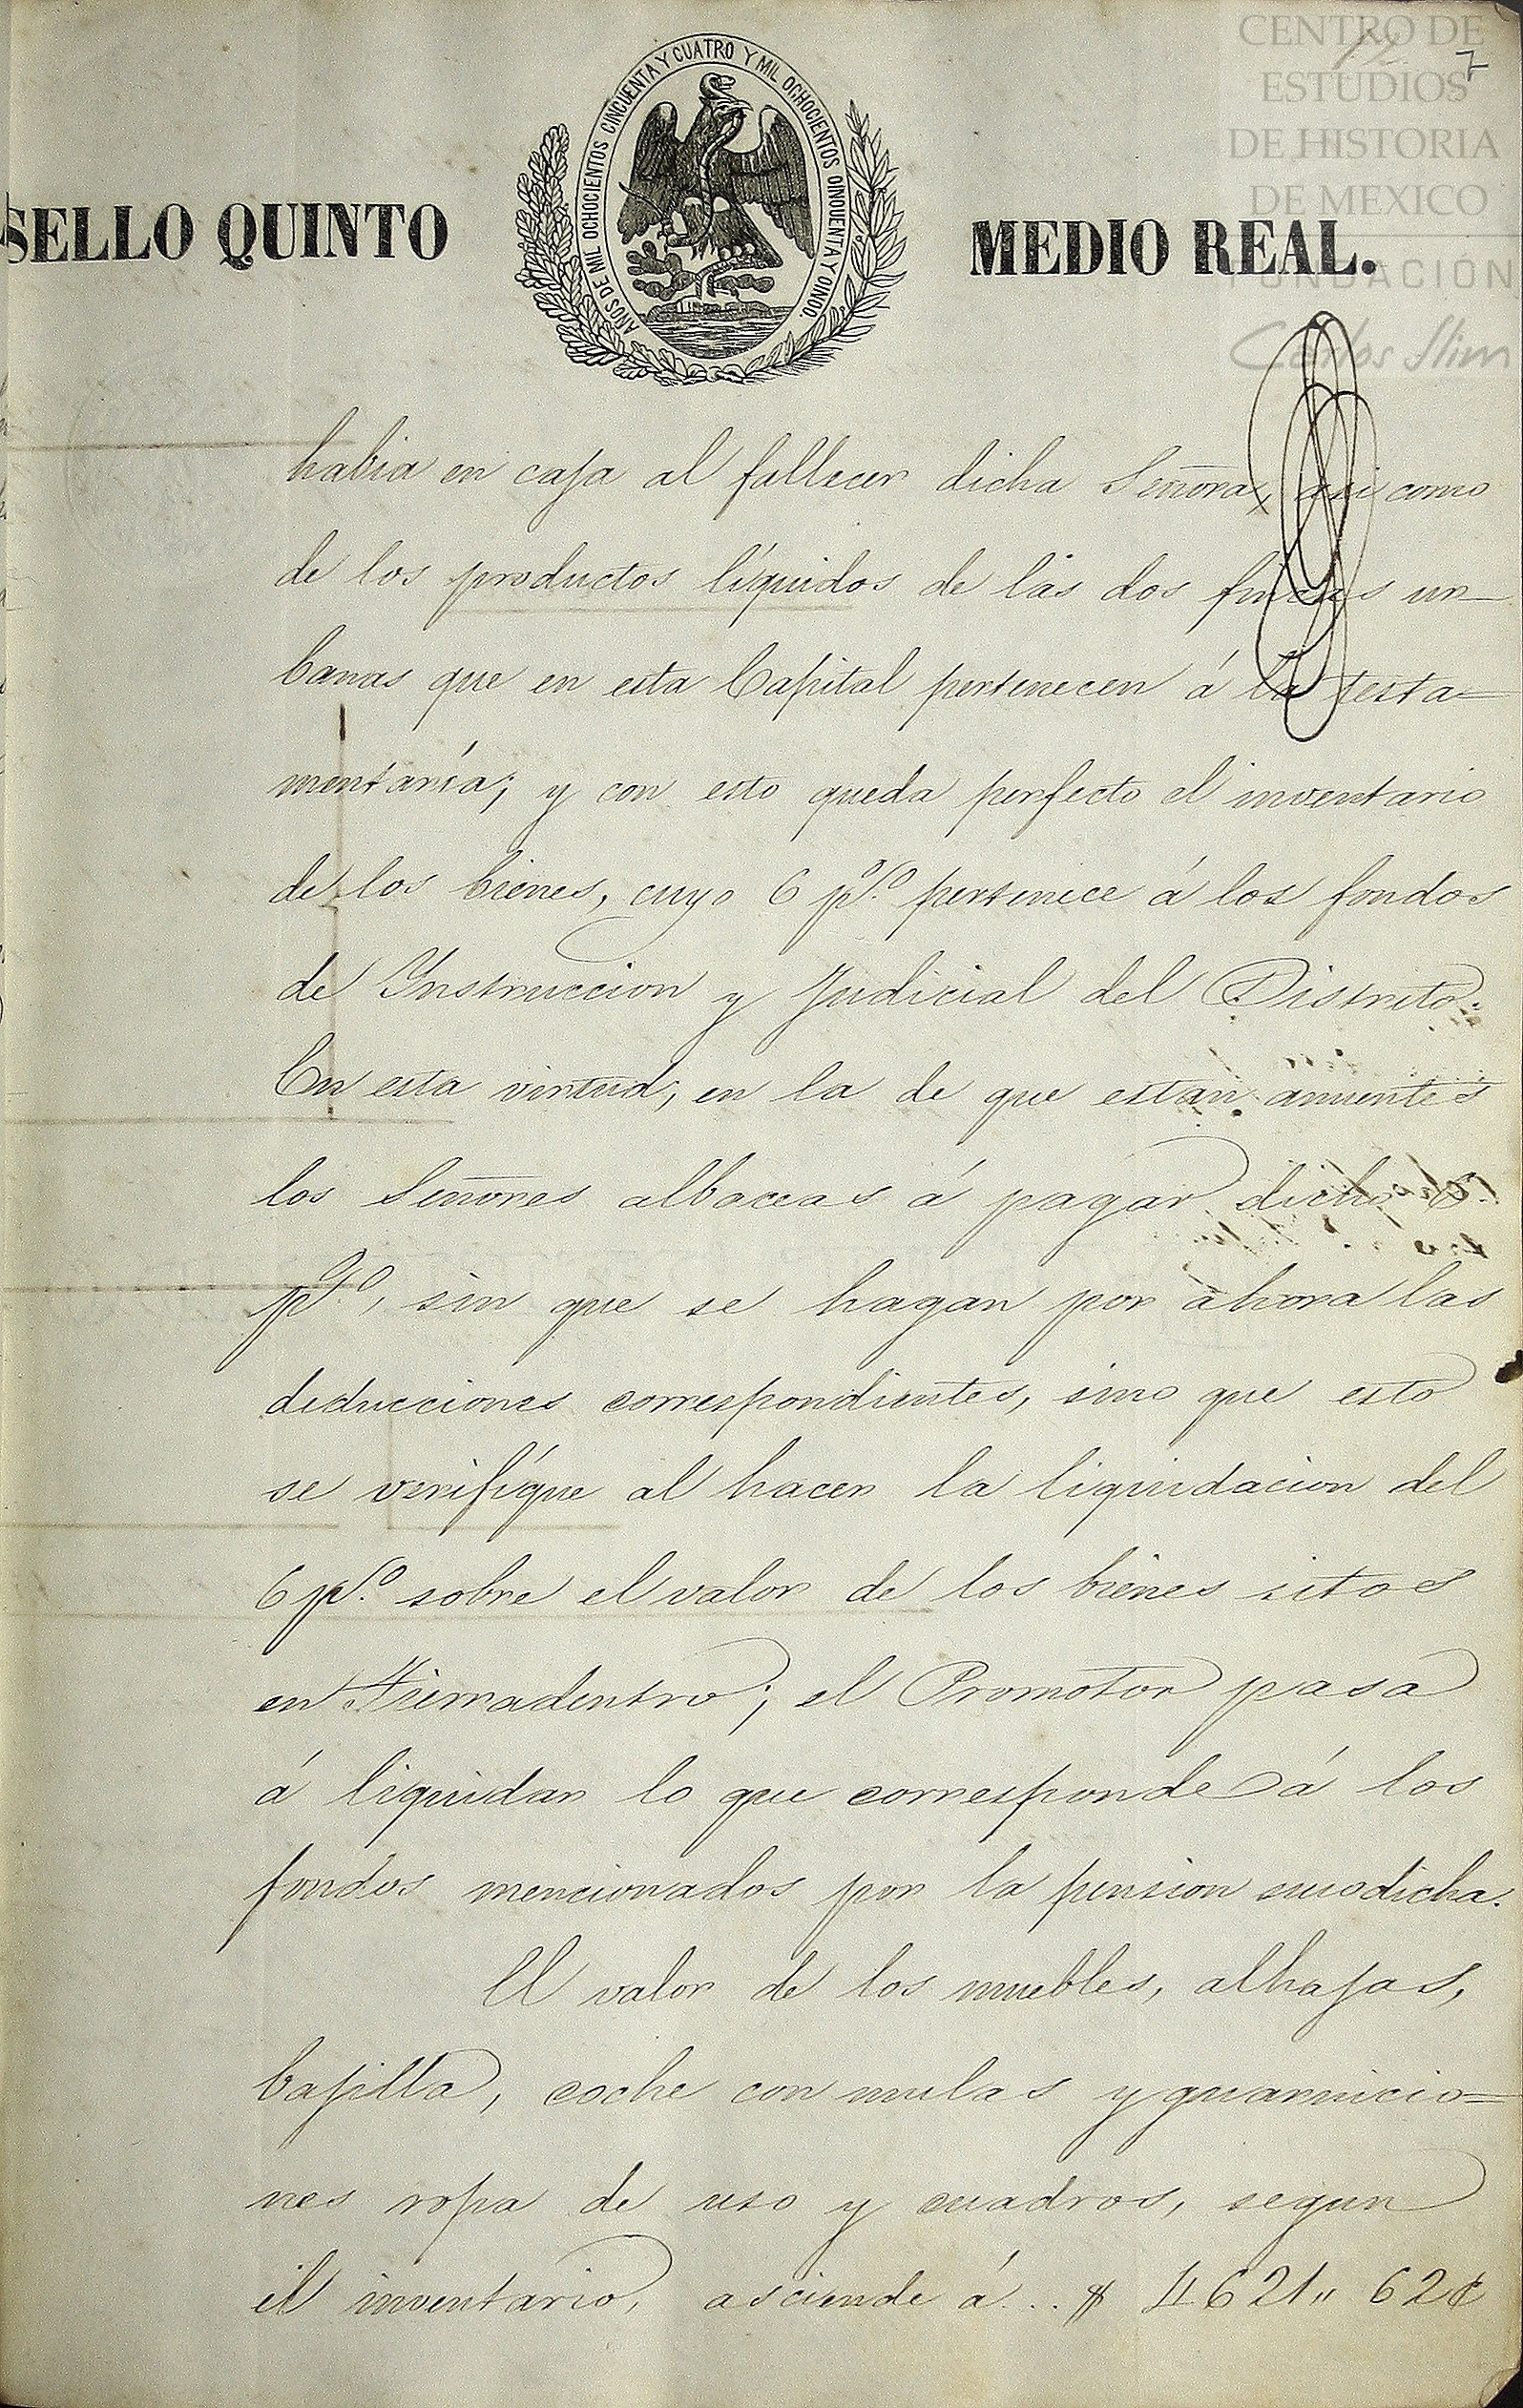 CENTRO DE
ESTUDIOS
DE HISTORIA
DE MEXICO
FUNDACIÓN
Carlos Slim
7
SELLO QUINTO
AÑOS DE MIL OCHOCIENTOS CINCUENTA Y CUATRO Y MIL OCHOCIENTOS CINCUENTA Y CINCO.
MEDIO REAL.
habia en caja al fallecer dicha Señora, asi como
de los productos líquidos de las dos fincas ur-
banas que en esta Capital pertenecen á la testa=
mentaría; y con esto queda perfecto el inventario
de los bienes, cuyo 6 p%. pertenece á los fondos
de Instruccion y Judicial del Distrito.
En esta virtud, en la de que estan anuentes
los Señores albaceas á pagar dicho 6
p%., sin que se hagan por ahora las
deducciones correspondientes, sino que esto
se verifíque al hacer la liquidacion del
6 p%. sobre el valor de los bienes sitos
en Tierradentro; el Promotor pasa
á liquidar lo que corresponde á los
fondos mencionados por la pension susodicha.
El valor de los muebles, alhajas,
bajilla, coche con mulas y guarnicio=
nes ropa de uso y cuadros, segun
el inventario, asciende á... $ 4621" 62¢